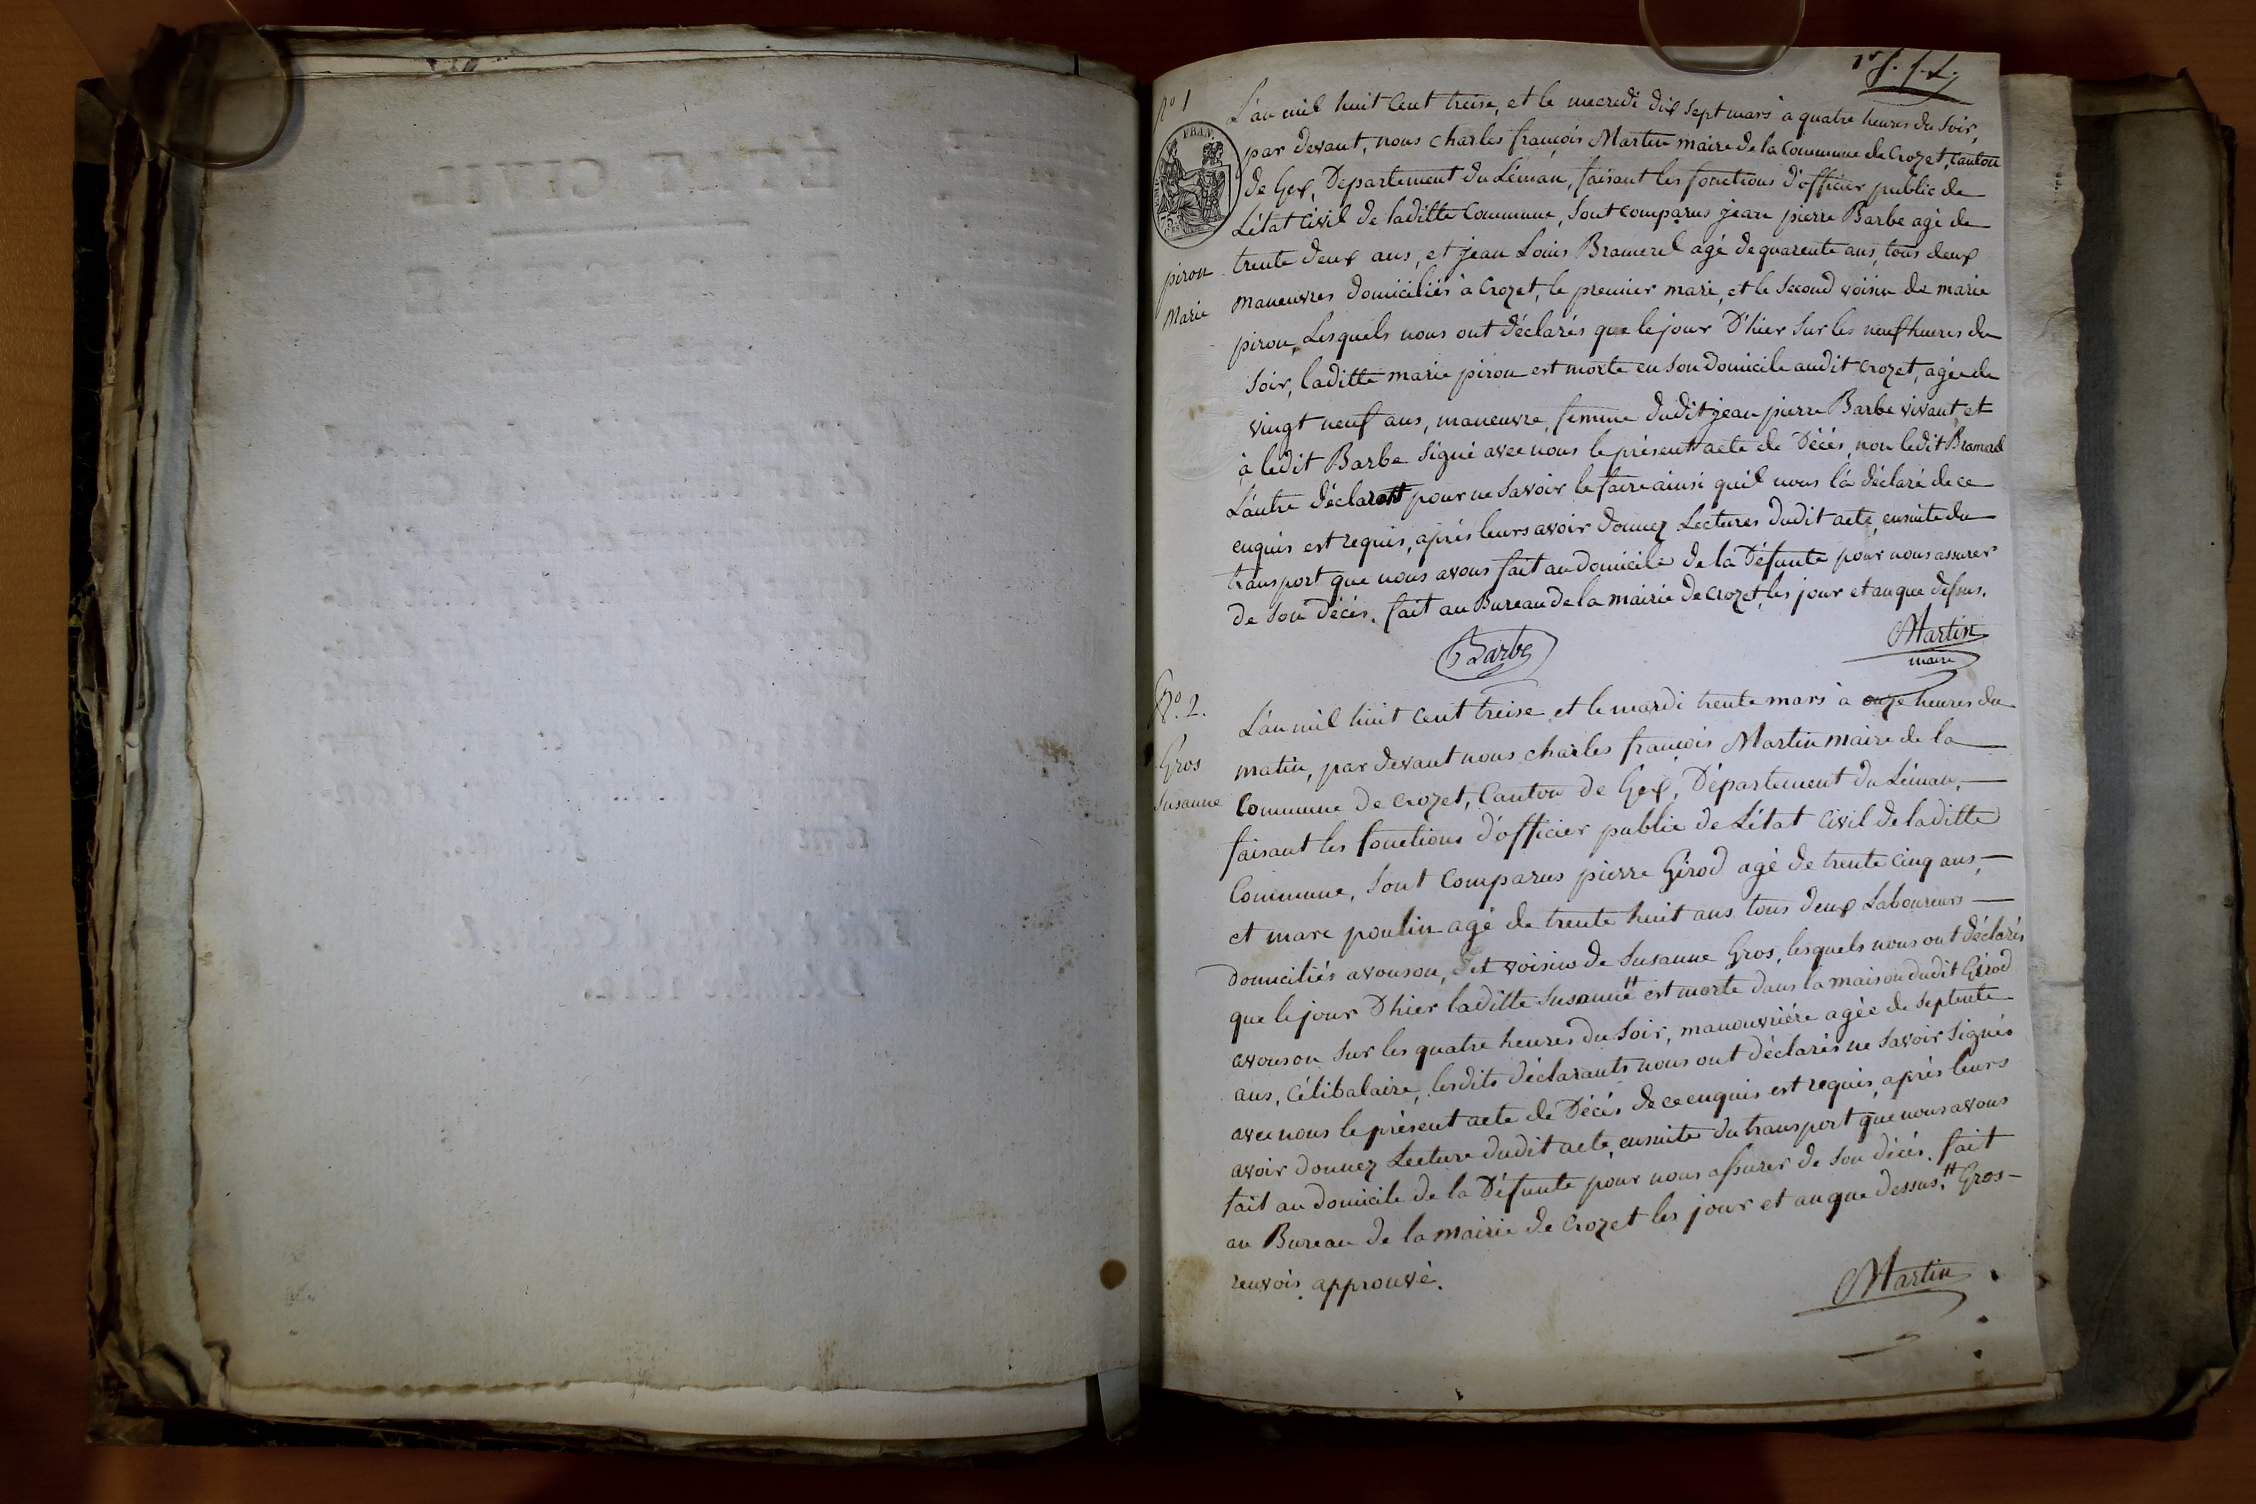 1er f.
N° 1
FRAN.
L'an mil huit cent treise, et le mecredi dix sept mars à quatre heures du soir,
par devant, nous charles françois Martin maire de la Commune de Crozet, Canton
de Gex, Département du Léman, faisant les fonctions d'officier public de
L'état Civil de laditte Commune, sont comparus jean pierre Barbe agé de
piron
Marie
trente deux ans, et jean Louis Bramerel agé de quarente ans, tous deux
maneuvres domiciliés à Crozet, le premier mari, et le second voisin de marie
piron, Lesquels nous ont déclarés que le jour D'hier sur les neuf heures du
soir, laditte marie piron est morte en son domicile audit crozet, agée de
vingt neuf ans, maneuvre, femme dudit jean pierre Barbe vivant et
à ledit Barbe signé avec nous le présent acte de Décés, non ledit Bramerel
L'autre déclarant pour ne savoir le faire ainsi quil nous l'a déclaré de ce
enquis est requis, après leurs avoir donnez Lectures dudit acte, ensuite du
transport que nous avons fait au domicile de la Défunte pour nous assurer
de son Décés. fait au Bureau de la mairie de crozet, les jour et an que dessus.
Barbe
Martin
maire
N°. 2.
Gros
Susanne
L'an mil huit cent treise, et le mardi trente mars à onze heures du
matin, par devant nous charles françois Martin maire de la
Commune de crozet, Canton de Gex, Département du Léman,
faisant les fonctions d'officier public de L'état Civil de laditte
Commune, sont comparus pierre Girod agé de trente cinq ans,
et marc poulin agé de trente huit ans tous deux Laboureurs
domiciliés avouson, et voisins de Susanne Gros, lesquels nous ont déclarés
que le jour D'hier laditte Susanne # est morte dans la maison dudit Girod
avouson sur les quatre heures du soir, manouvriére agée de septente
ans, Célibataire, lesdits déclarants nous ont déclarés ne savoir signés
avec nous le présent acte de Décés de ce enquis est requis, après leurs
avoir donnez Lecture dudit acte, ensuite du transport que nous avons
fait au domicile de la Défunte pour nous assurer de son décés. fait
au Bureau de la mairie de Crozet les jour et an que dessus. # Gros
renvois approuvé.
Martin